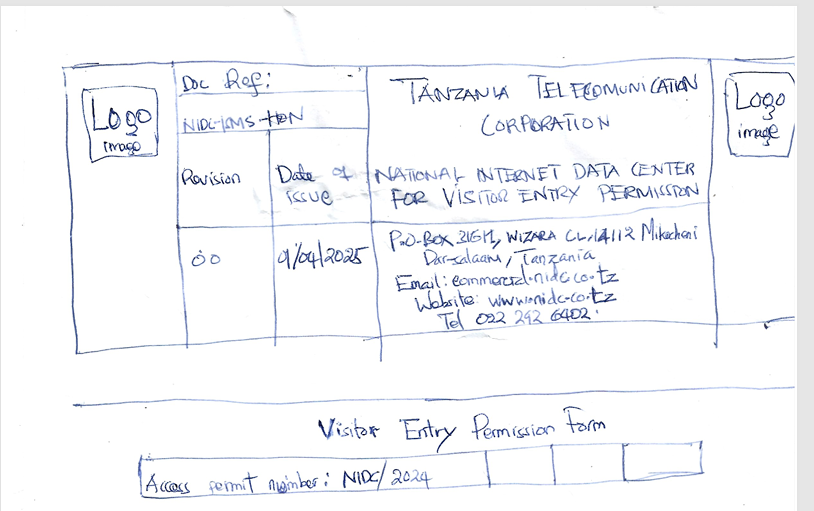 Logo
image
Doc Ref:
NIDC-IMS-
Revision
Date of
issue
00
01/04/2025
TANZANIA TELECOMUNICATION
CORPORATION
NATIONAL INTERNET DATA CENTER
FOR VISITOR ENTRY PERMISSION
P.O.BOX WIZARA CL, 14112 Mikocheni
Dar-salaam, Tanzania
Email: commercial.nidc.co.tz
Website: www.nidc.co.tz
Tel 022 292 6402.
Logo
image
Visitor Entry Permission Form
Access permit number: NIDC/2024